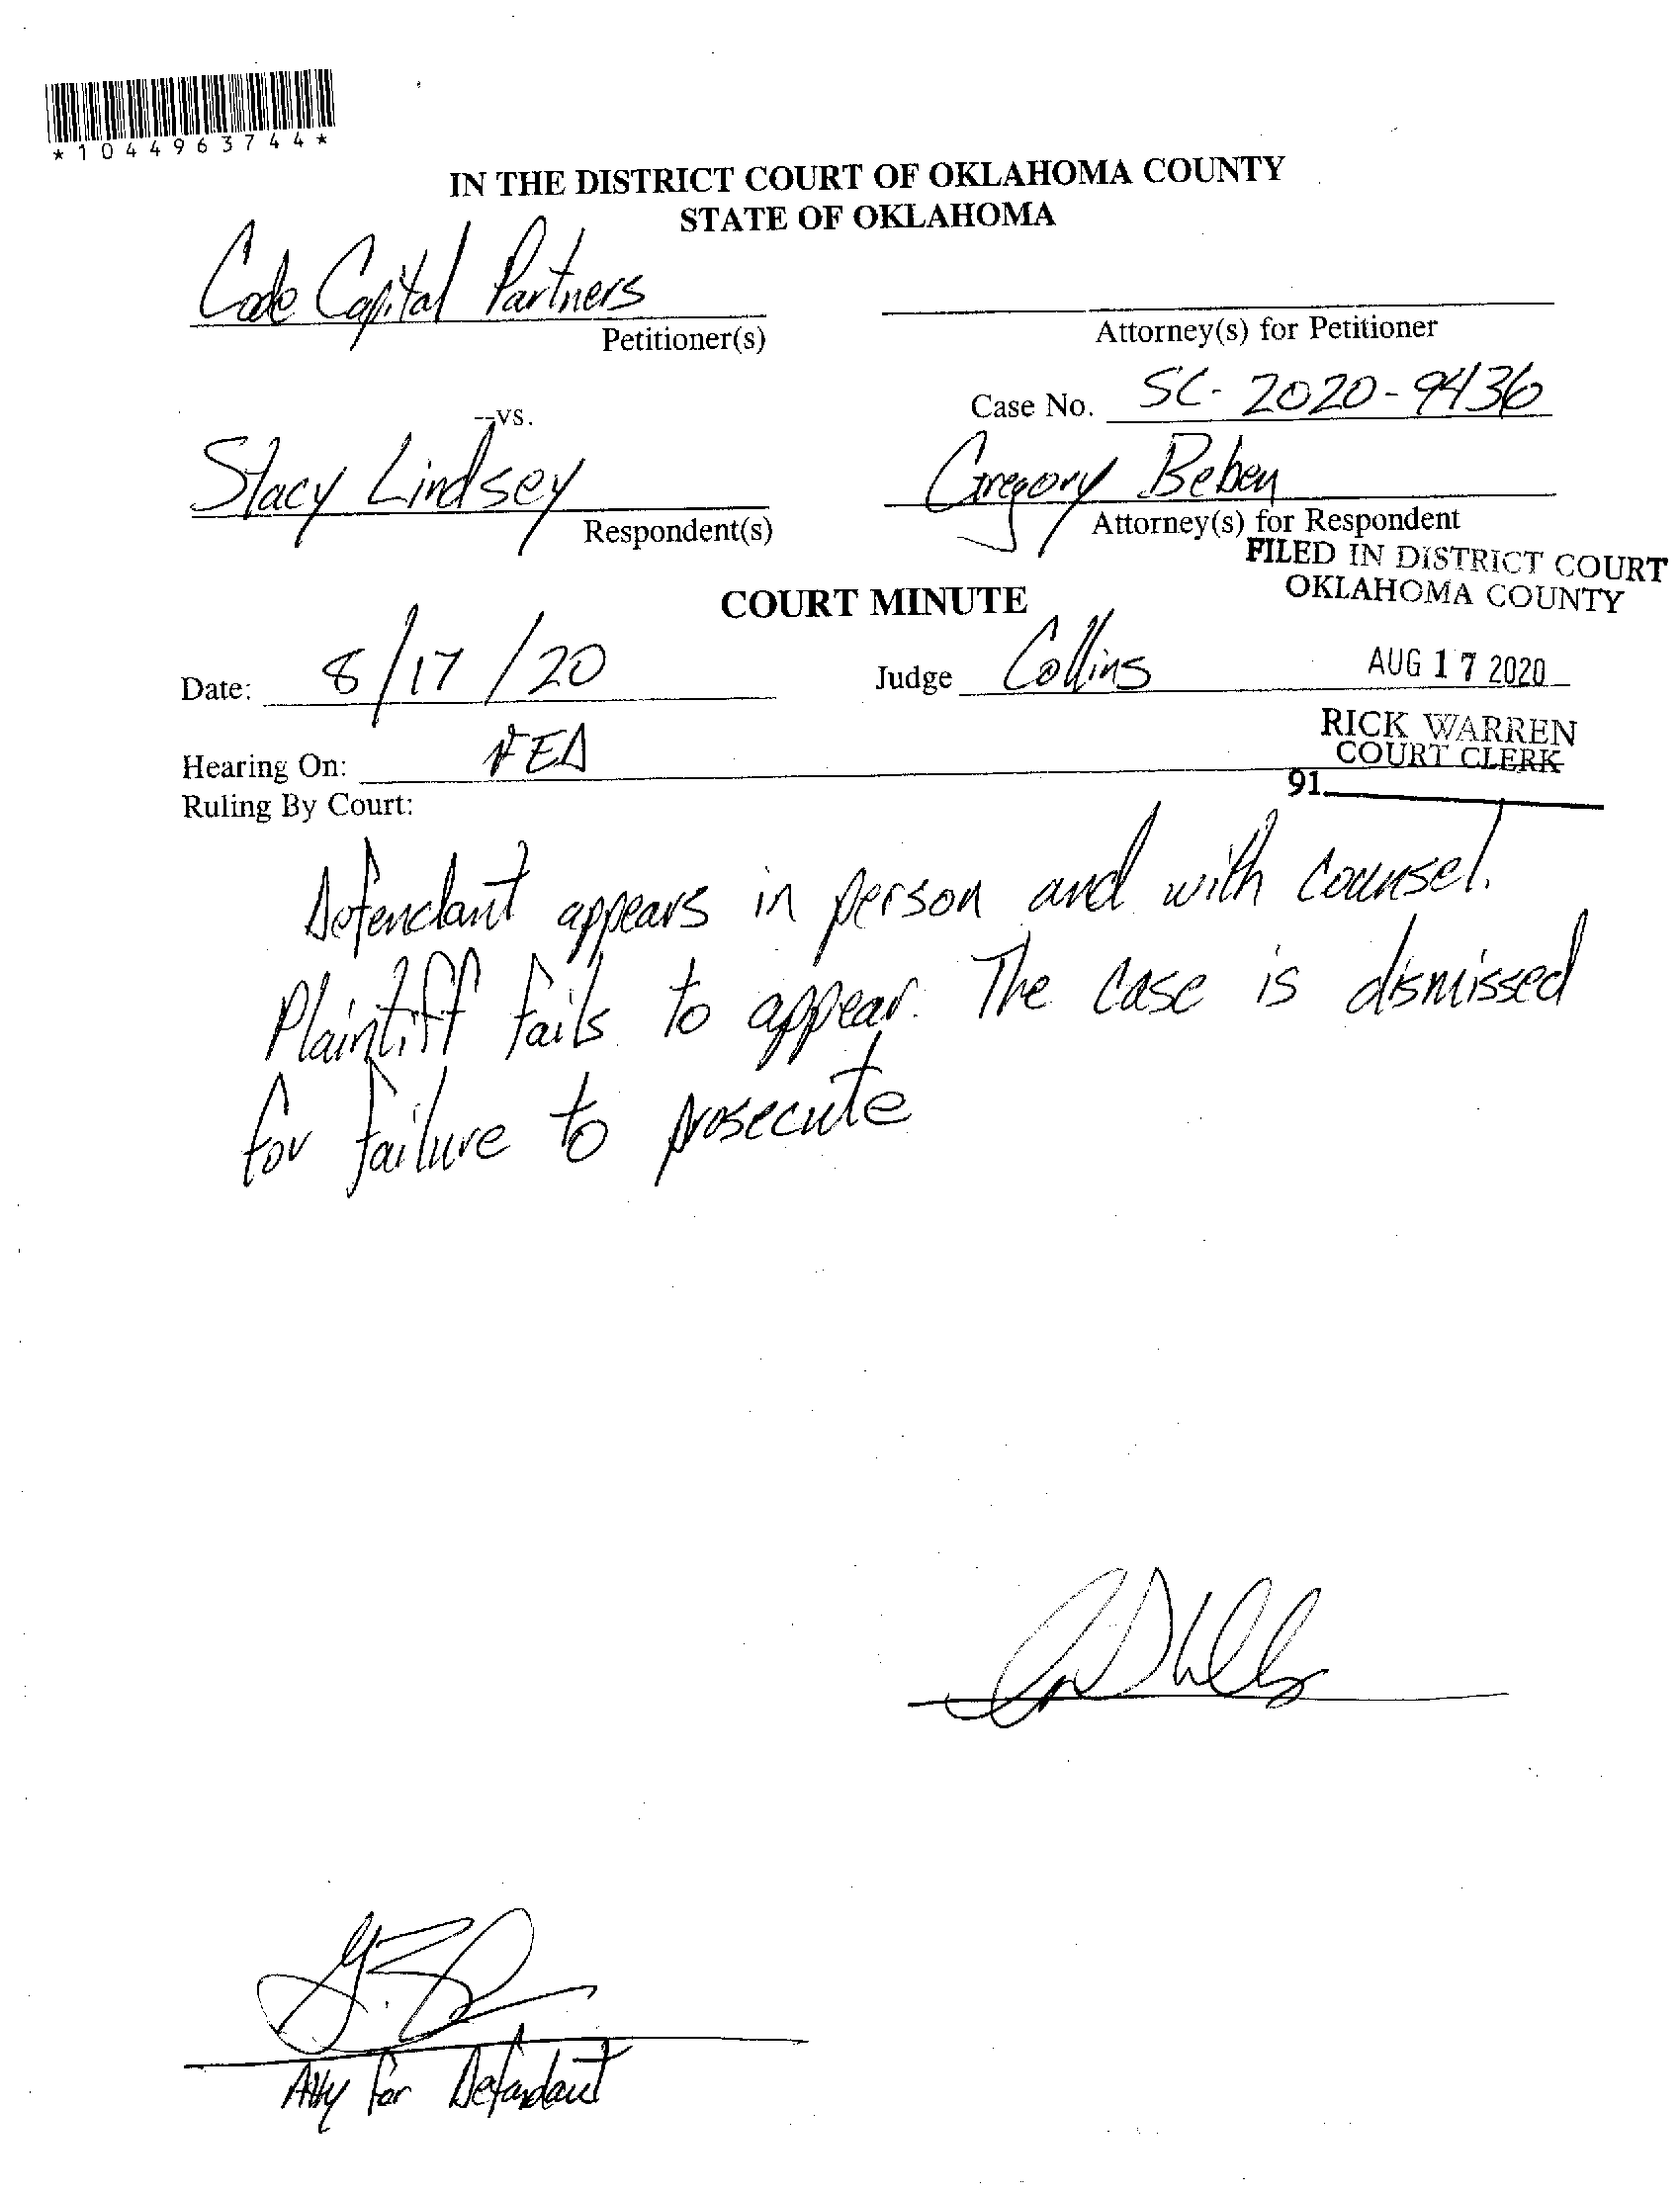 *1044963744*
IN THE DISTRICT COURT OF OKLAHOMA COUNTY
STATE OF OKLAHOMA
Code Capital Partners
Petitioner(s)
Attorney(s) for Petitioner
Case No. SC-2020-9436
--vs.
Stacy Lindsey
Respondent(s)
Gregory Beben
Attorney(s) for Respondent
FILED IN DISTRICT COURT
OKLAHOMA COUNTY
COURT MINUTE
Date: 8/17/20
Judge Collins
AUG 17 2020
RICK WARREN
COURT CLERK
Hearing On: FED
91
Ruling By Court:
Defendant appears in person and with counsel.
Plaintiff fails to appear. The case is dismissed
for failure to prosecute
Atty for Defendant